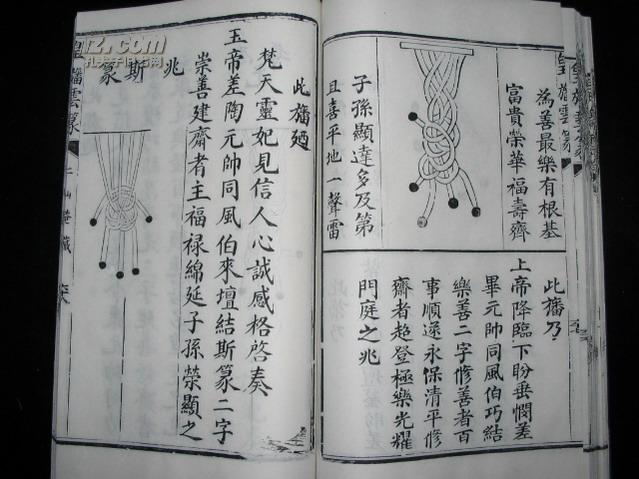 皇旛雲篆
為善最樂有根基
富貴榮華福壽齊
子孫顯達多及第
且喜平地一聲雷
此旛乃
上帝降臨下盼垂憫差
畢元帥同風伯巧結
樂善二字修善者百
事順遂永保清平修
齋者超登極樂光耀
門庭之兆
此旛廼
梵天靈妃見信人心誠感格啓奏
玉帝差陶元帥同風伯來壇結斯篆二字
崇善建齋者主福禄綿延子孫榮顯之
兆
斯
篆
皇旛雲篆